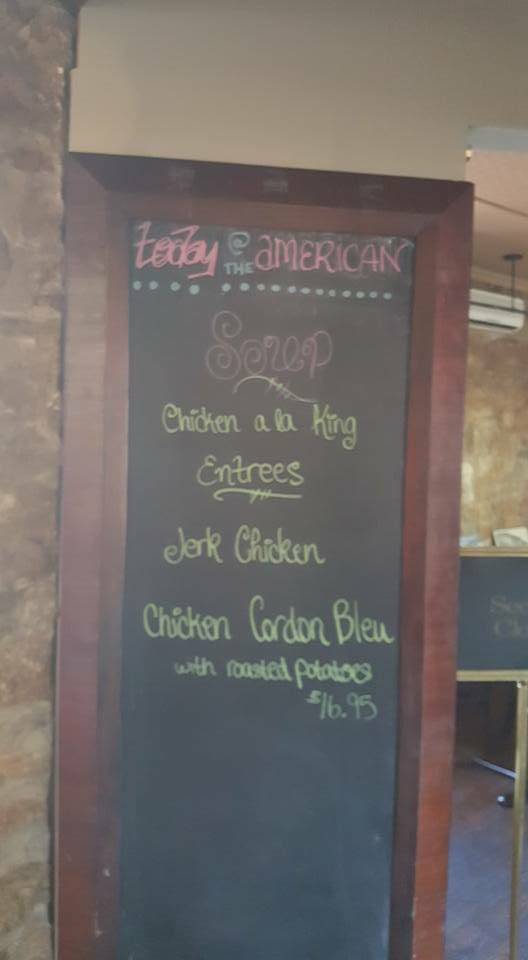 today @ THE AMERICAN
Soup
Chicken a la King
Entrees
Jerk Chicken
Chicken Cordon Bleu
with roasted potatoes
$16.95